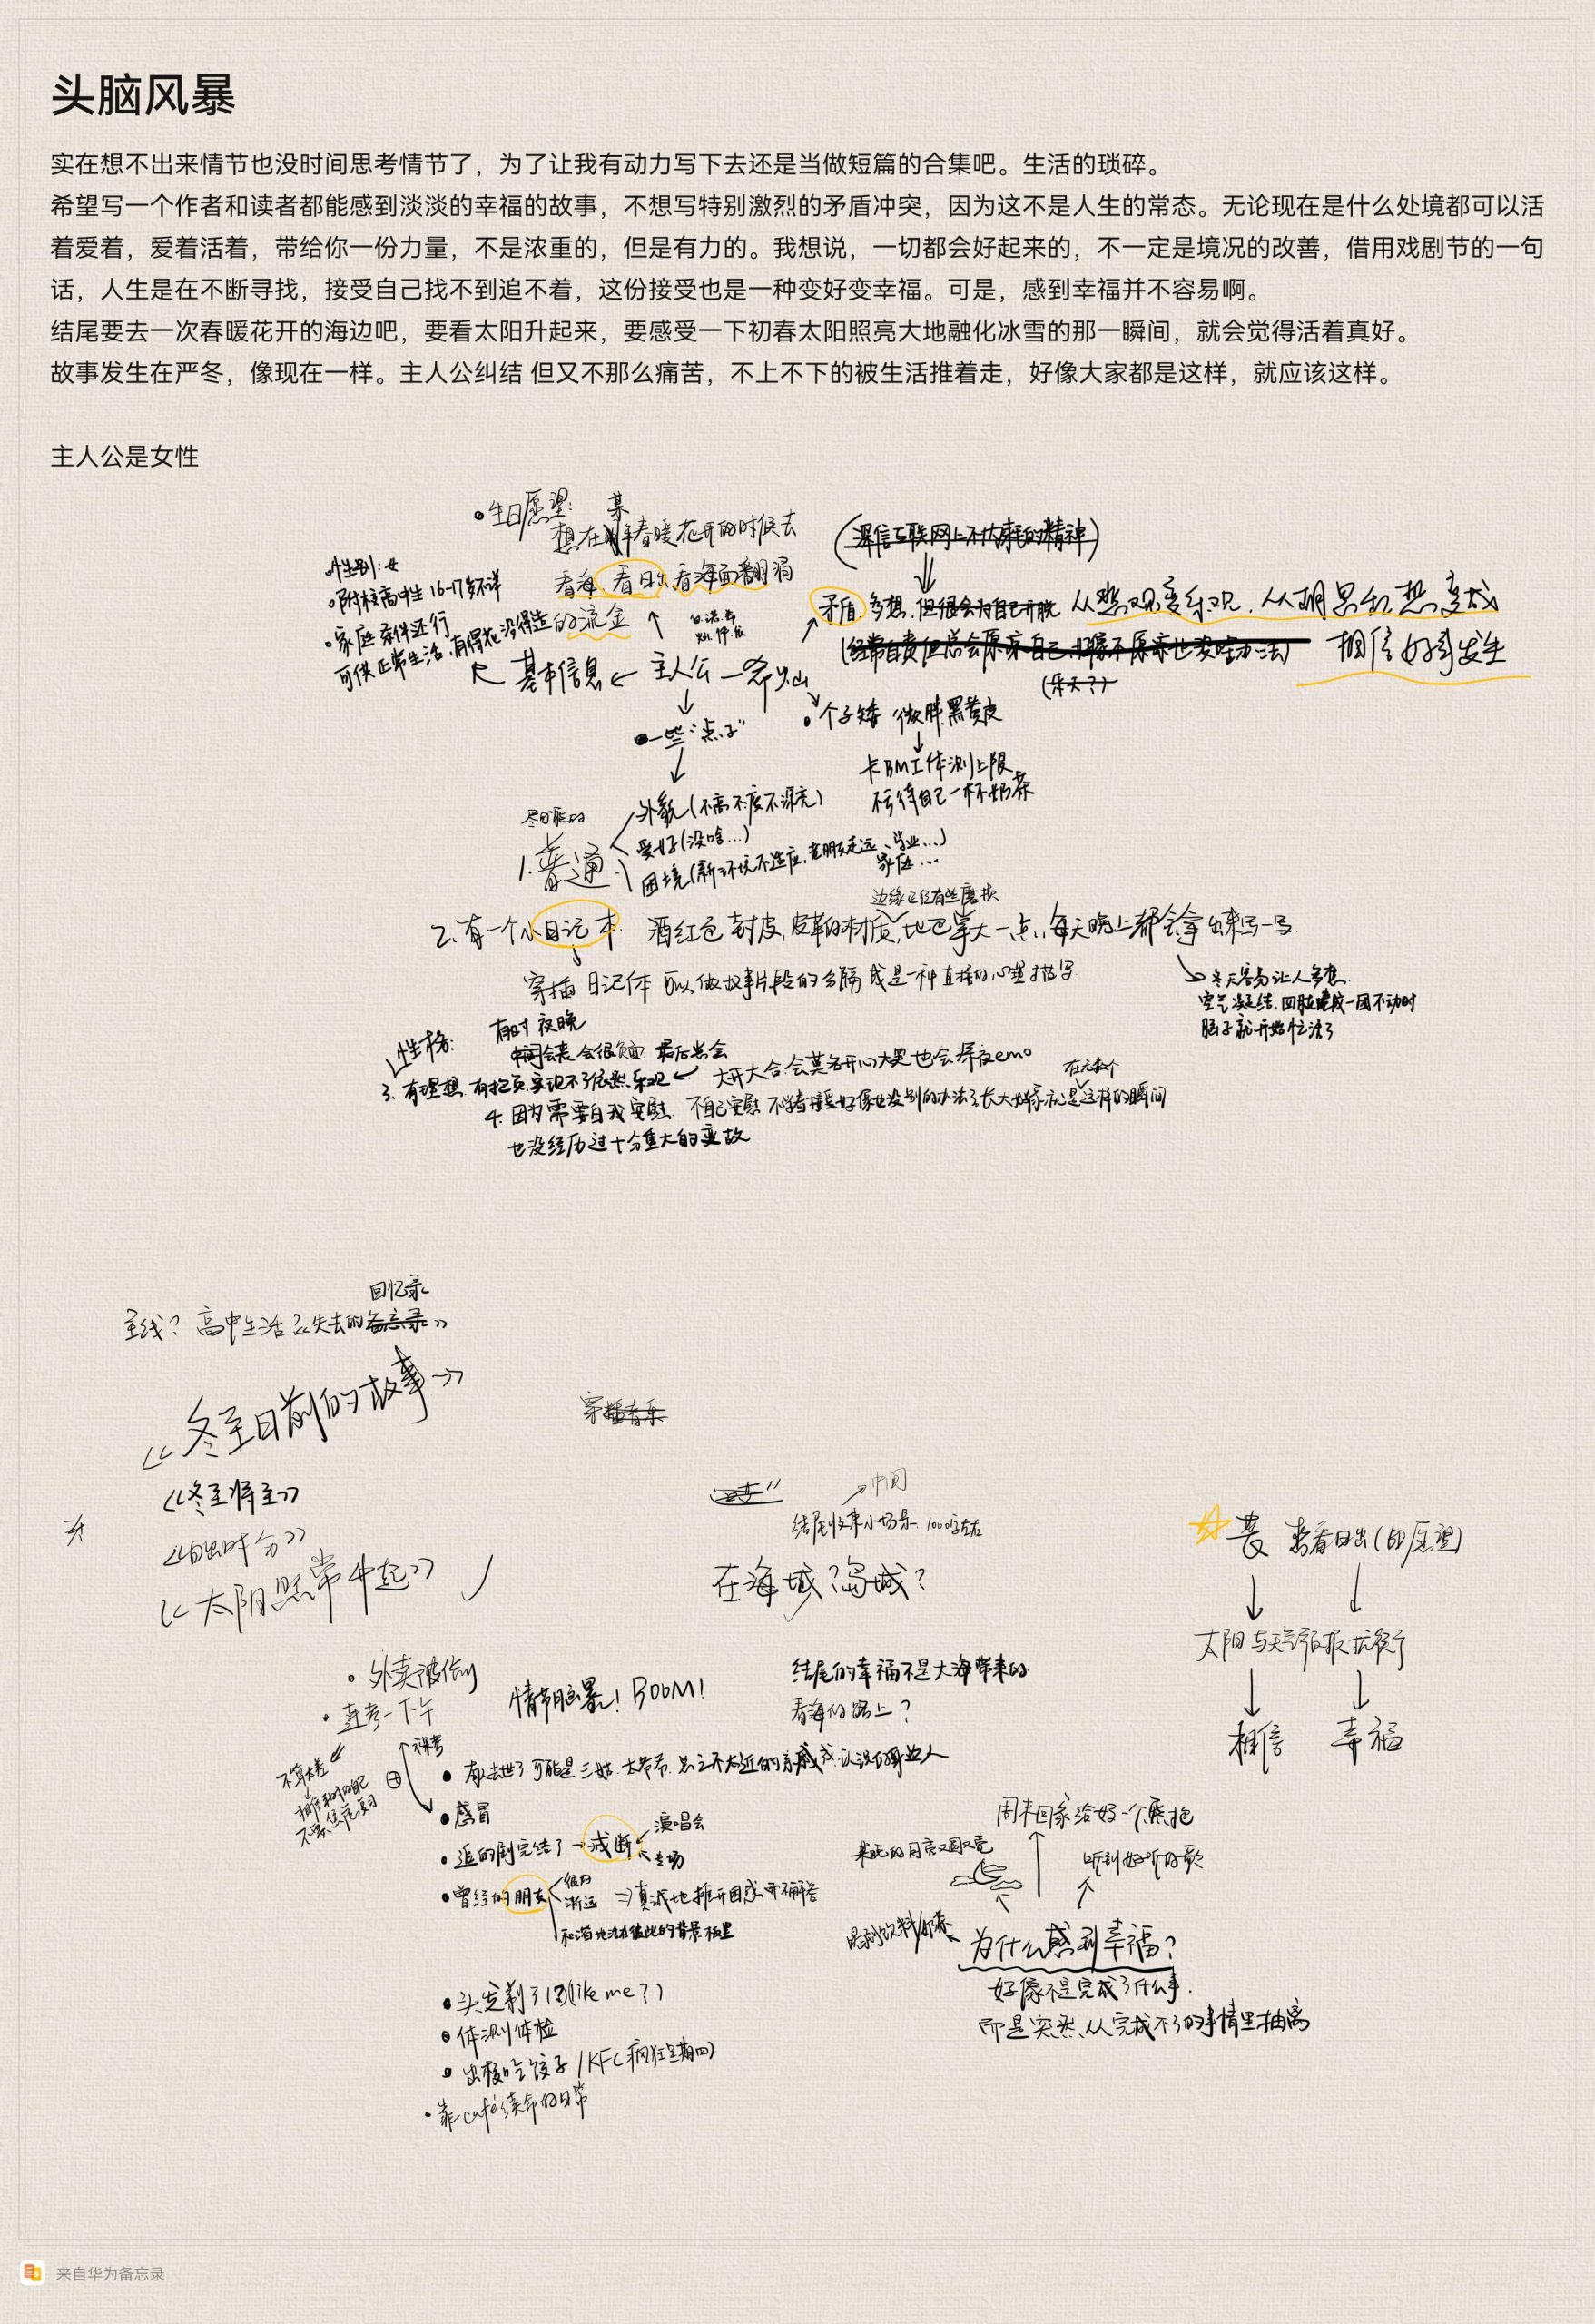 头脑风暴
实在想不出来情节也没时间思考情节了，为了让我有动力写下去还是当做短篇的合集吧。生活的琐碎。
希望写一个作者和读者都能感到淡淡的幸福的故事，不想写特别激烈的矛盾冲突，因为这不是人生的常态。无论现在是什么处境都可以活
着爱着，爱着活着，带给你一份力量，不是浓重的，但是有力的。我想说，一切都会好起来的，不一定是境况的改善，借用戏剧节的一句
话，人生是在不断寻找，接受自己找不到追不着，这份接受也是一种变好变幸福。可是，感到幸福并不容易啊。
结尾要去一次春暖花开的海边吧，要看太阳升起来，要感受一下初春太阳照亮大地融化冰雪的那一瞬间，就会觉得活着真好。
故事发生在严冬，像现在一样。主人公纠结 但又不那么痛苦，不上不下的被生活推着走，好像大家都是这样，就应该这样。
主人公是女性
生日愿望: 某
想在年春暖花开的时候去
看海、看日出、看海面翻涌
的流金
(深信互联网上不内耗的精神)
性别: 女
附校高中生 16-17岁不详
家庭条件还行
可供正常生活,有得花没得造
基本信息 ← 主人公
矛盾 多想,但很会为自己开脱 从悲观变乐观、从胡思乱想变成
相信好事发生
(经常自责但总会原谅自己,好像不原谅也没啥办法)
(乐天?)
个子矮 微胖 黑黄皮
卡BMI体测上限
不亏待自己一杯奶茶
一些“点子”
尽可能的
1. 普通
外貌(不高不瘦不漂亮)
爱好(没啥...)
困境(新环境不适应,老朋友走远、学业...)
家庭...
边缘已经有些磨损
2. 有一个小日记本 酒红色封皮,皮革的材质,比巴掌大一点,每天晚上都会拿出来写一写
穿插 日记体 可以做故事片段的分隔 或是一种直接的心理描写
冬天容易让人多想
空气凝结,四肢缩成一团不动时
脑子就开始忙活了
性格:
有时 夜晚
中间会丧 会很负面 最后总会
3. 有理想 有抱负,实现不了依然乐观 ← 大开大合 会莫名开心大笑也会深夜emo
在无数个
4. 因为需要自我安慰 不自己安慰 不学着接受好像也没别的办法了长大好像就是这样的瞬间
也没经历过十分重大的变故
回忆录
主线? 高中生活 《失去的备忘录》
《冬至日前的故事》
穿插音乐
《冬至将至》
《日出时分》
《太阳照常升起》
中间
结尾收束小场景 1000字左右
在海城?岛城?
丧 想看日出(即愿望)
太阳与天气预报抗衡
相信 幸福
外卖被偷
连考一下午
情节脑暴! BOOM!
结尾的幸福不是大海带来的
看海的路上?
不算太差
有人去世了 可能是三姑、大爷爷,总之不太近的亲戚或认识的职业人
感冒
追的剧完结了→戒断
演唱会
专场
曾经的朋友
很归
渐远
⇒真诚地摊开困惑 并不解答
和谐地活在彼此的背景板里
头发剃了!?(like me?)
体测体检
出校吃饺子/KFC疯狂星期四
靠café续命的日常
周末回家给妈一个熊抱
听到好听的歌
为什么感到幸福?
好像不是完成了什么事,
而是突然从完成不了的事情里抽离
来自华为备忘录